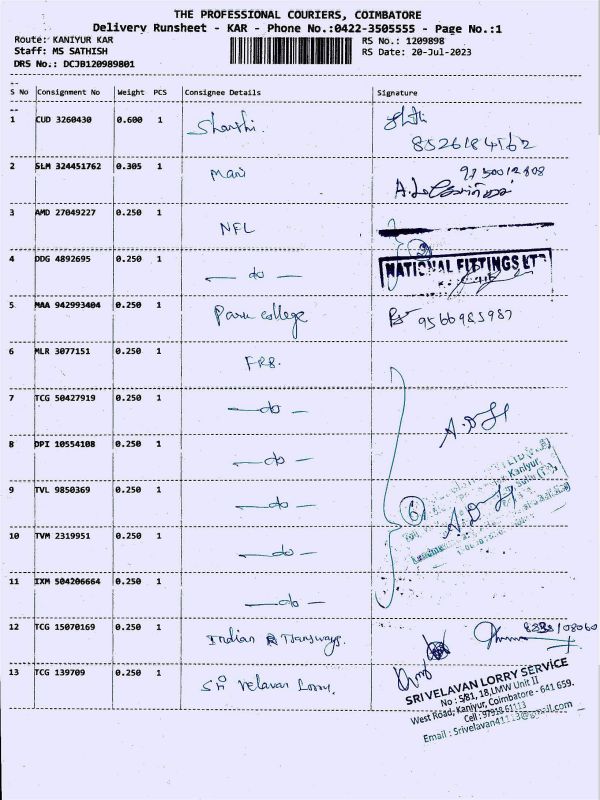 THE PROFESSIONAL COURIERS, COIMBATORE
Delivery Runsheet - KAR - Phone No.:0422-3505555 - Page No.:1
Route: KANIYUR KAR
RS No.: 1209898
Staff: MS SATHISH
RS Date: 20-Jul-2023
DRS No.: DCJB120989801
S No Consignment No Weight PCS Consignee Details Signature
1 CUD 3260430 0.600 1 Shanthi.
8526184562
2 SLM 324451762 0.305 1 Mani
9750012808
3 AMD 27049227 0.250 1 NFL
4 DDG 4892695 0.250 1 — do —
NATIONAL FITTINGS LTD
5 MAA 942993404 0.250 1 Park college
9566983987
6 MLR 3077151 0.250 1 FRB.
7 TCG 50427919 0.250 1 — do —
8 DPI 10554108 0.250 1 — do —
9 TVL 9850369 0.250 1 — do —
6
10 TVM 2319951 0.250 1 — do —
11 IXM 504206664 0.250 1 — do —
12 TCG 15070169 0.250 1 Indian Transways.
13 TCG 139709 0.250 1 Sri Velavan Lorry.
SRI VELAVAN LORRY SERVICE
No : 5/81, 18,LMW Unit II
West Road, Kaniyur, Coimbatore - 641 659.
Cell : 97918 61113
Email : Srivelavan41113@gmail.com